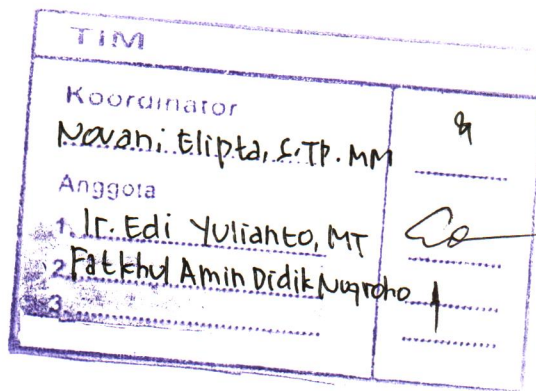 TIM
Koordinator
Novani Elipta, S.TP. MM
Anggota
1. Ir. Edi Yulianto, MT
2. Fatkhul Amin Didik Nugroho
3.